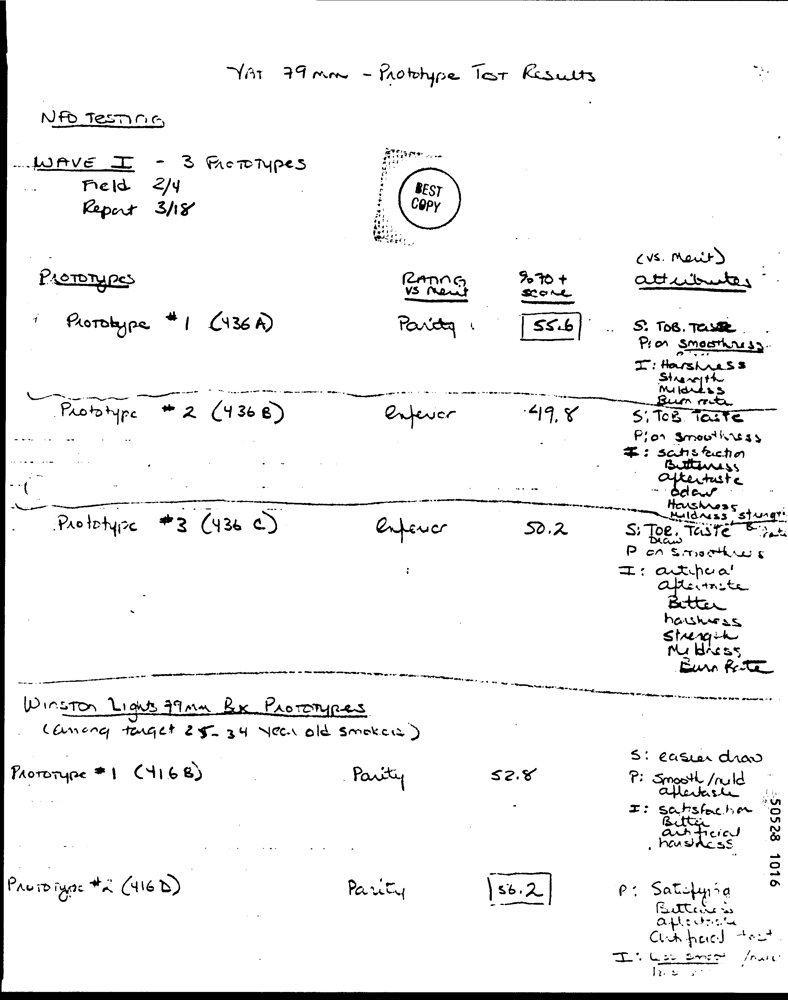 YAT 79mm - Prototype Test Results
NFO Testing
WAVE I - 3 Prototypes
Field 2/4
Report 3/18
BEST
COPY
(vs. Merit)
Prototypes RATING % 70 + attributes
vs Merit score
Prototype #1 (436A) Parity 55.6 S: TOB. Taste
P: on smoothness
I: Harshness
Strength
Mildness
Burn rate
Prototype #2 (436B) Inferior 49.8 S: TOB Taste
P: on smoothness
I: satisfaction
Bitterness
aftertaste
odor
Harshness
Mildness strength
& rate
Prototype #3 (436C) Inferior 50.2 S: TOB. Taste
Draw
P on smoothness
I: artificial
aftertaste
Bitter
harshness
Strength
Mildness
Burn Rate
Winston Lights 79mm Box Prototypes
(Among target 25-34 year old smokers)
S: easier draw
Prototype #1 (416B) Parity 52.8 P: Smooth/mild
aftertaste
I: satisfaction
Bitter
artificial
harshness
50528 1016
Prototype #2 (416D) Parity 56.2 P: Satisfying
Bitterness
aftertaste
Artificial taste
I: Less smooth